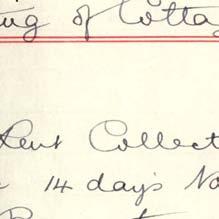 ing of Cotta
Rent Collect
14 days No